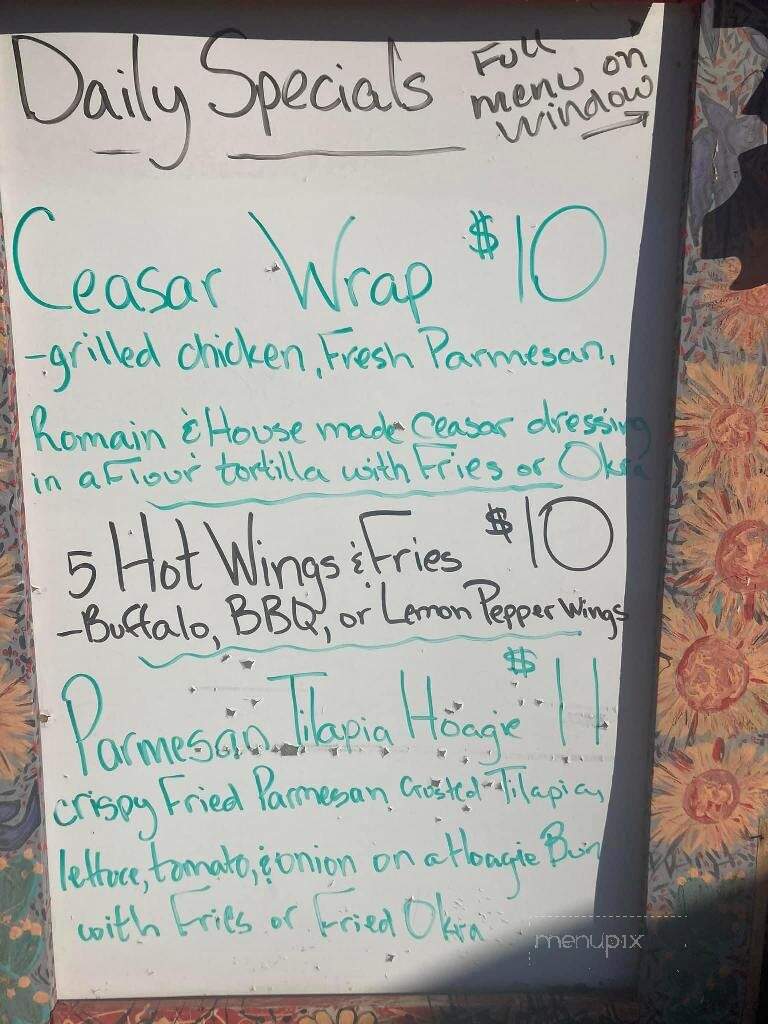 Daily Specials
Full
menu on
window
Ceasar Wrap $10
-grilled chicken, Fresh Parmesan,
Romain & House made Ceasar dressing
in a Flour tortilla with Fries or Okra
5 Hot Wings & Fries $10
-Buffalo, BBQ, or Lemon Pepper Wings
Parmesan Tilapia Hoagie $11
crispy Fried Parmesan Crusted Tilapia,
lettuce, tomato, & onion on a Hoagie Bun
with Fries or Fried Okra
menupix